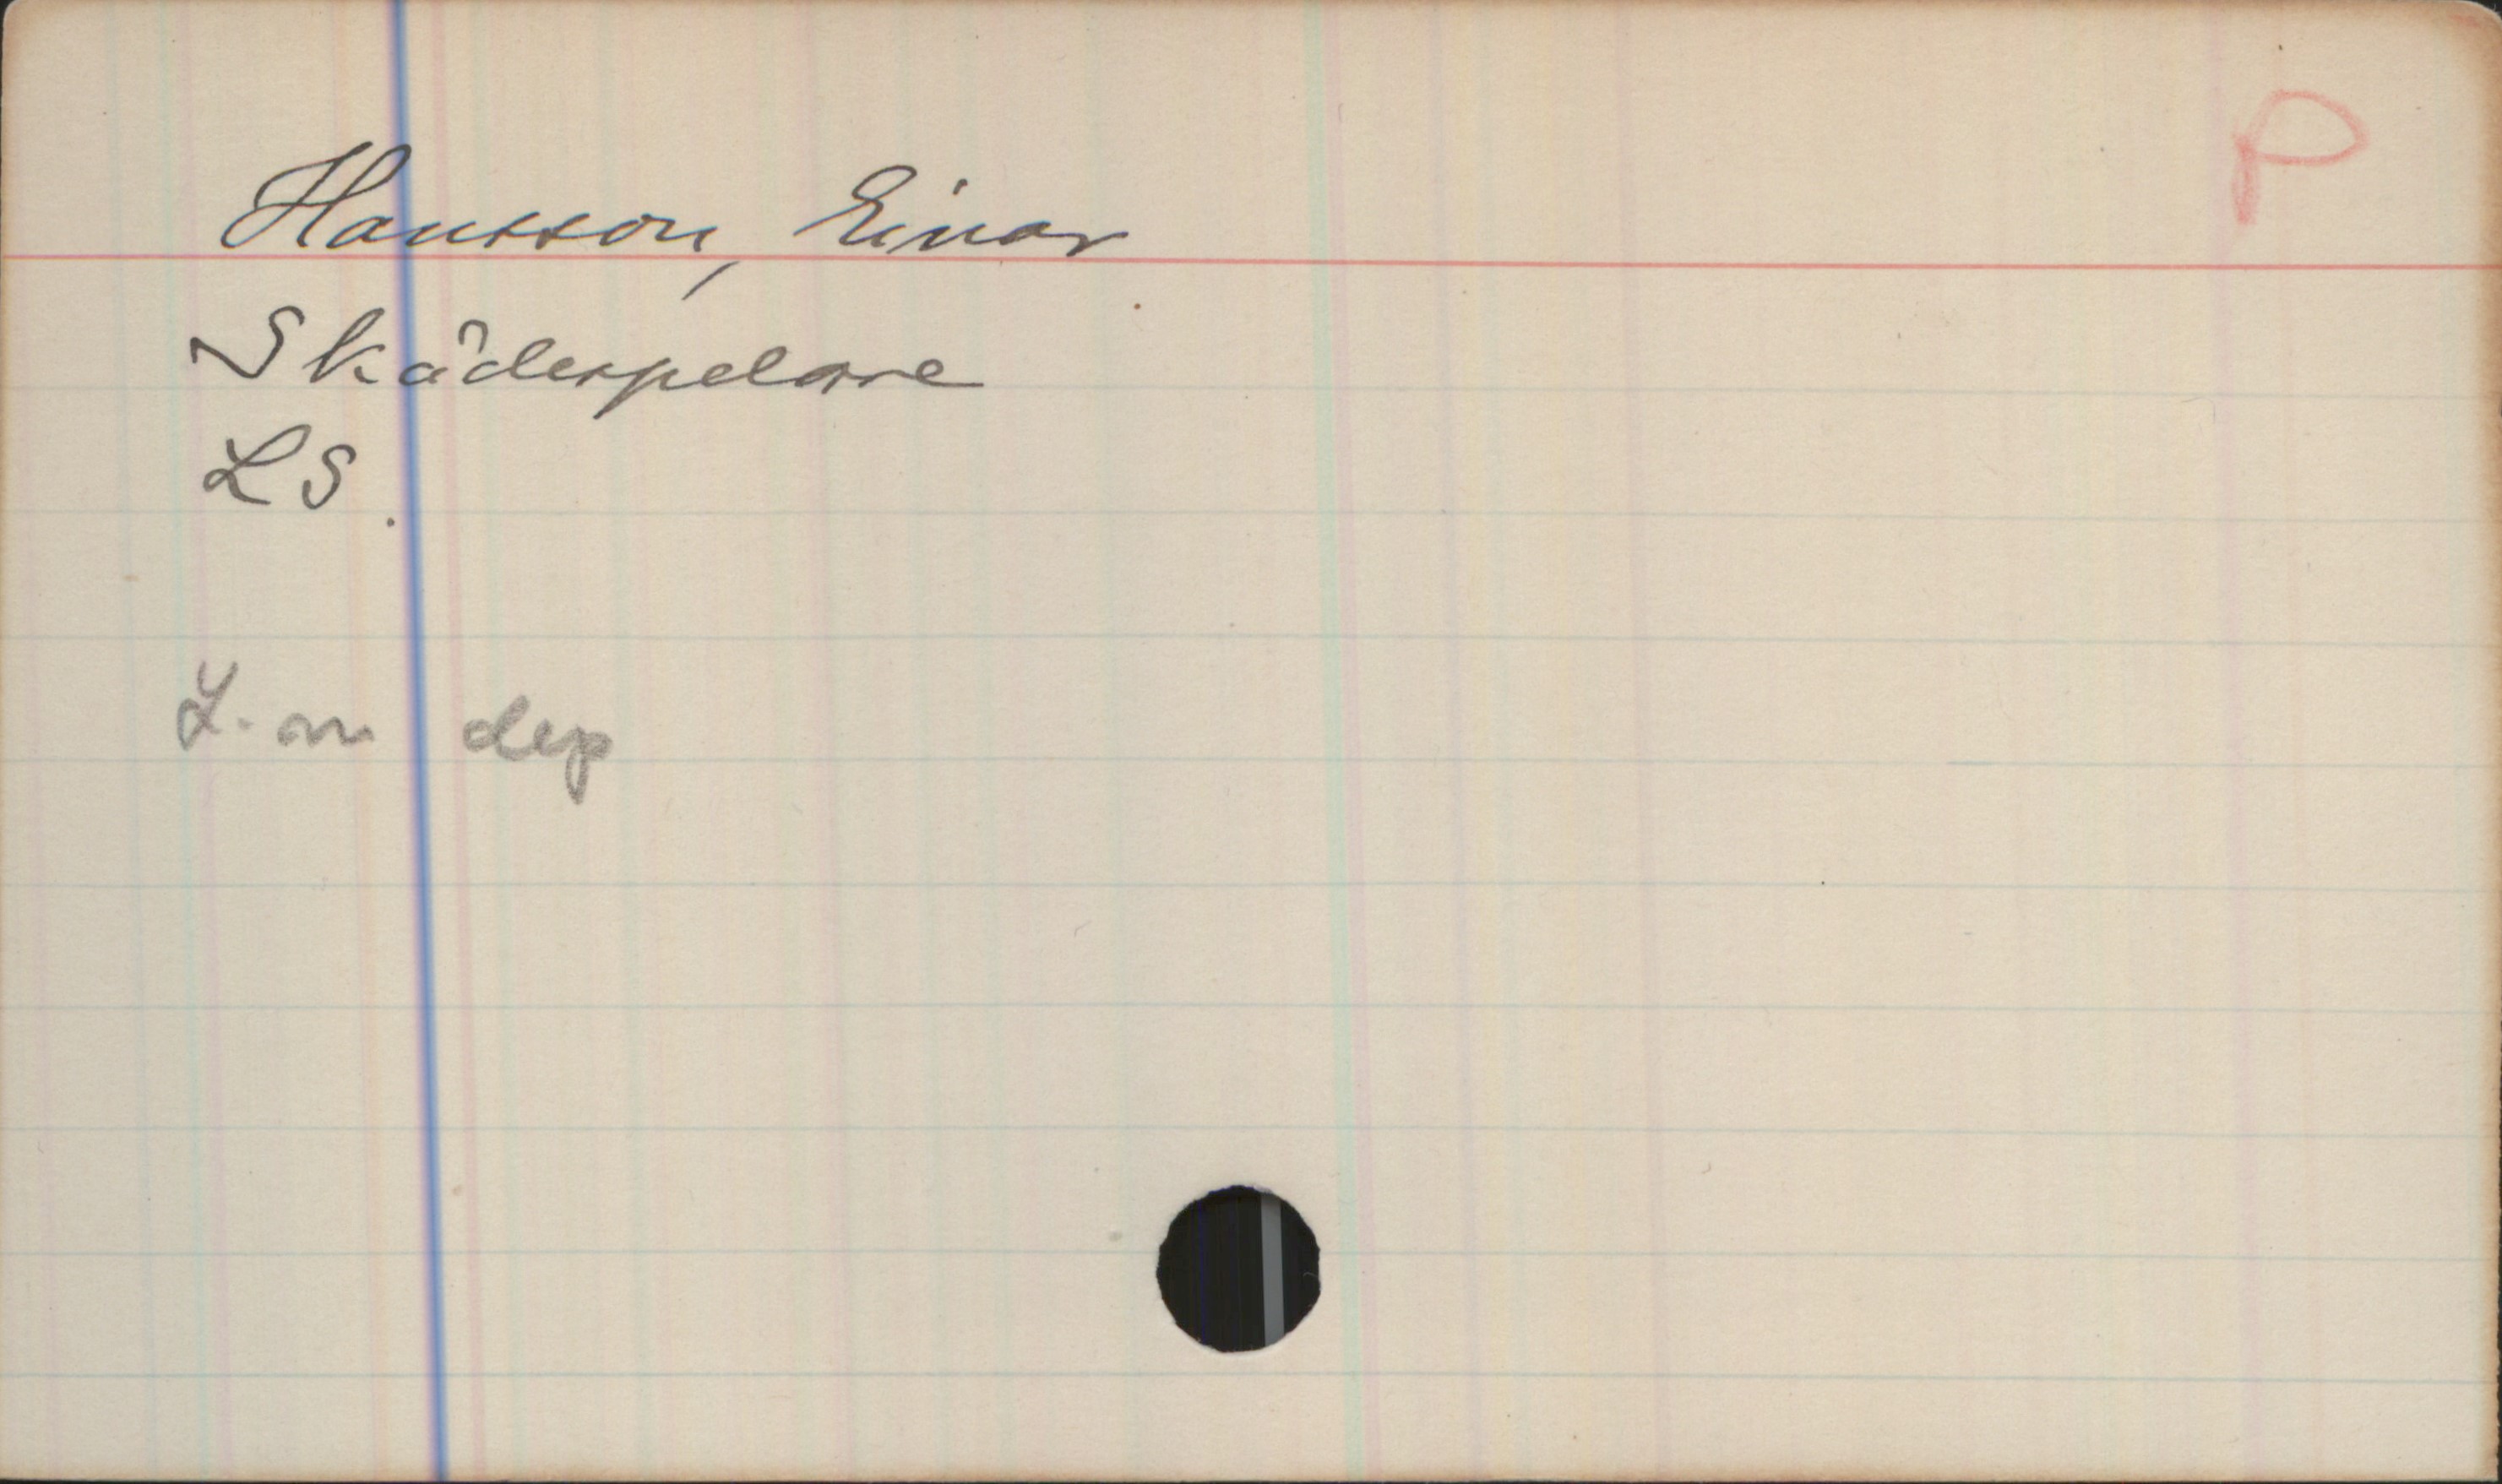 P
Hansson, Einar
Skådespelare
LS.
L. m dep